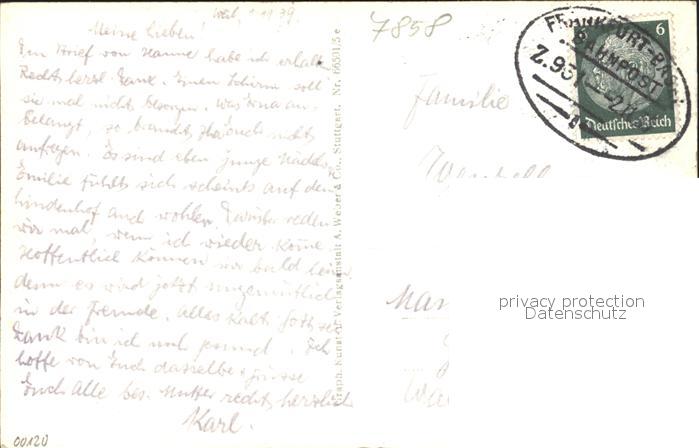 Weil, 1.11.39
Meine Lieben!
Den Brief von Hanne habe ich erhalt.
Recht herzl. Dank. Einen Schirm soll
sie mal nicht besorgen. Was Erna an-
belangt, so braucht Ihr Euch nicht
aufregen. Es sind eben junge Mädels.
Emilie fühlt sich scheints auf dem
Lindenhof auch wohler. Darüber reden
wir mal, wenn ich wieder komme.
Hoffentlich können wir bald heim,
denn es wird jetzt ungemütlich
in der Fremde. Alles kalt. Gott sei
Dank bin ich noch gesund. Ich
hoffe von Euch dasselbe + Grüsse
Euch Alle bes. Mutter recht herzlich
Karl.
00120
Graph. Kunst- u. Verlagsanstalt A. Weber & Co., Stuttgart.
7858
Familie
FRANKFURT-BASEL
BAHNPOST
6 6
Deutsches Reich
privacy protection
Datenschutz